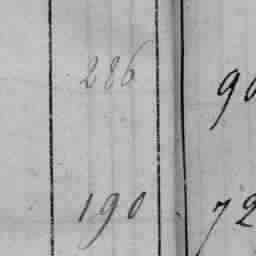 286 90
190 72